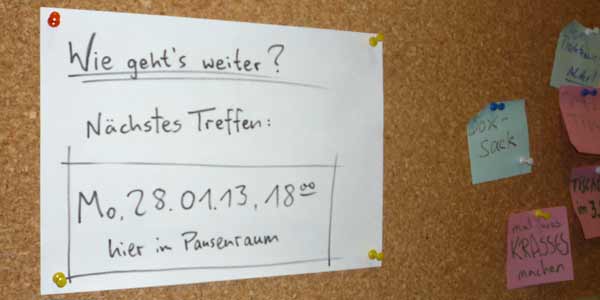 Wie geht's weiter?
Nächstes Treffen:
Mo, 28.01.13, 18⁰⁰
hier in Pausenraum
Box-
Sack
mal was
KRASSES
machen